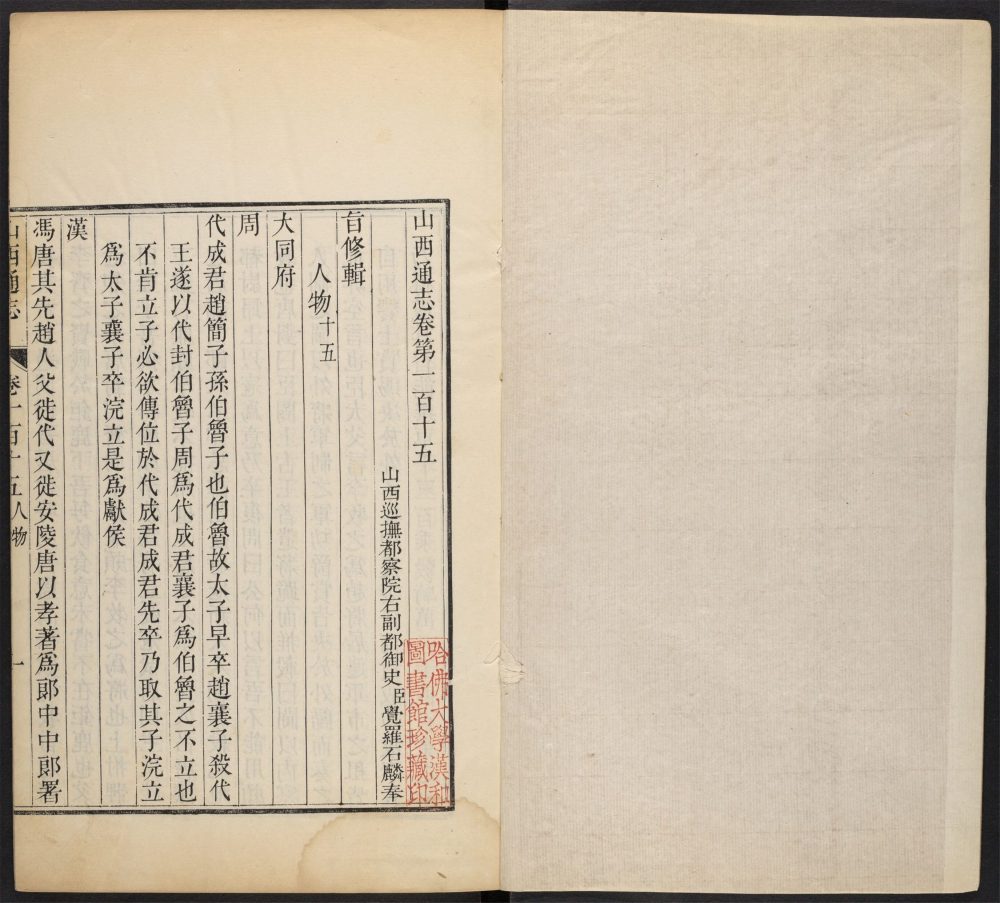 山西通志卷第一百十五
山西巡撫都察院右副都御史臣覺羅石麟奉
旨修輯
人物十五
大同府
周
代成君趙簡子孫伯魯子也伯魯故太子早卒趙襄子殺代
王遂以代封伯魯子周爲代成君襄子爲伯魯之不立也
不肯立子必欲傳位於代成君成君先卒乃取其子浣立
爲太子襄子卒浣立是爲獻侯
漢
馮唐其先趙人父徙代又徙安陵唐以孝著爲郎中中郎署
山西通志
卷一百十五人物
一
哈佛大學漢和
圖書館珍藏印